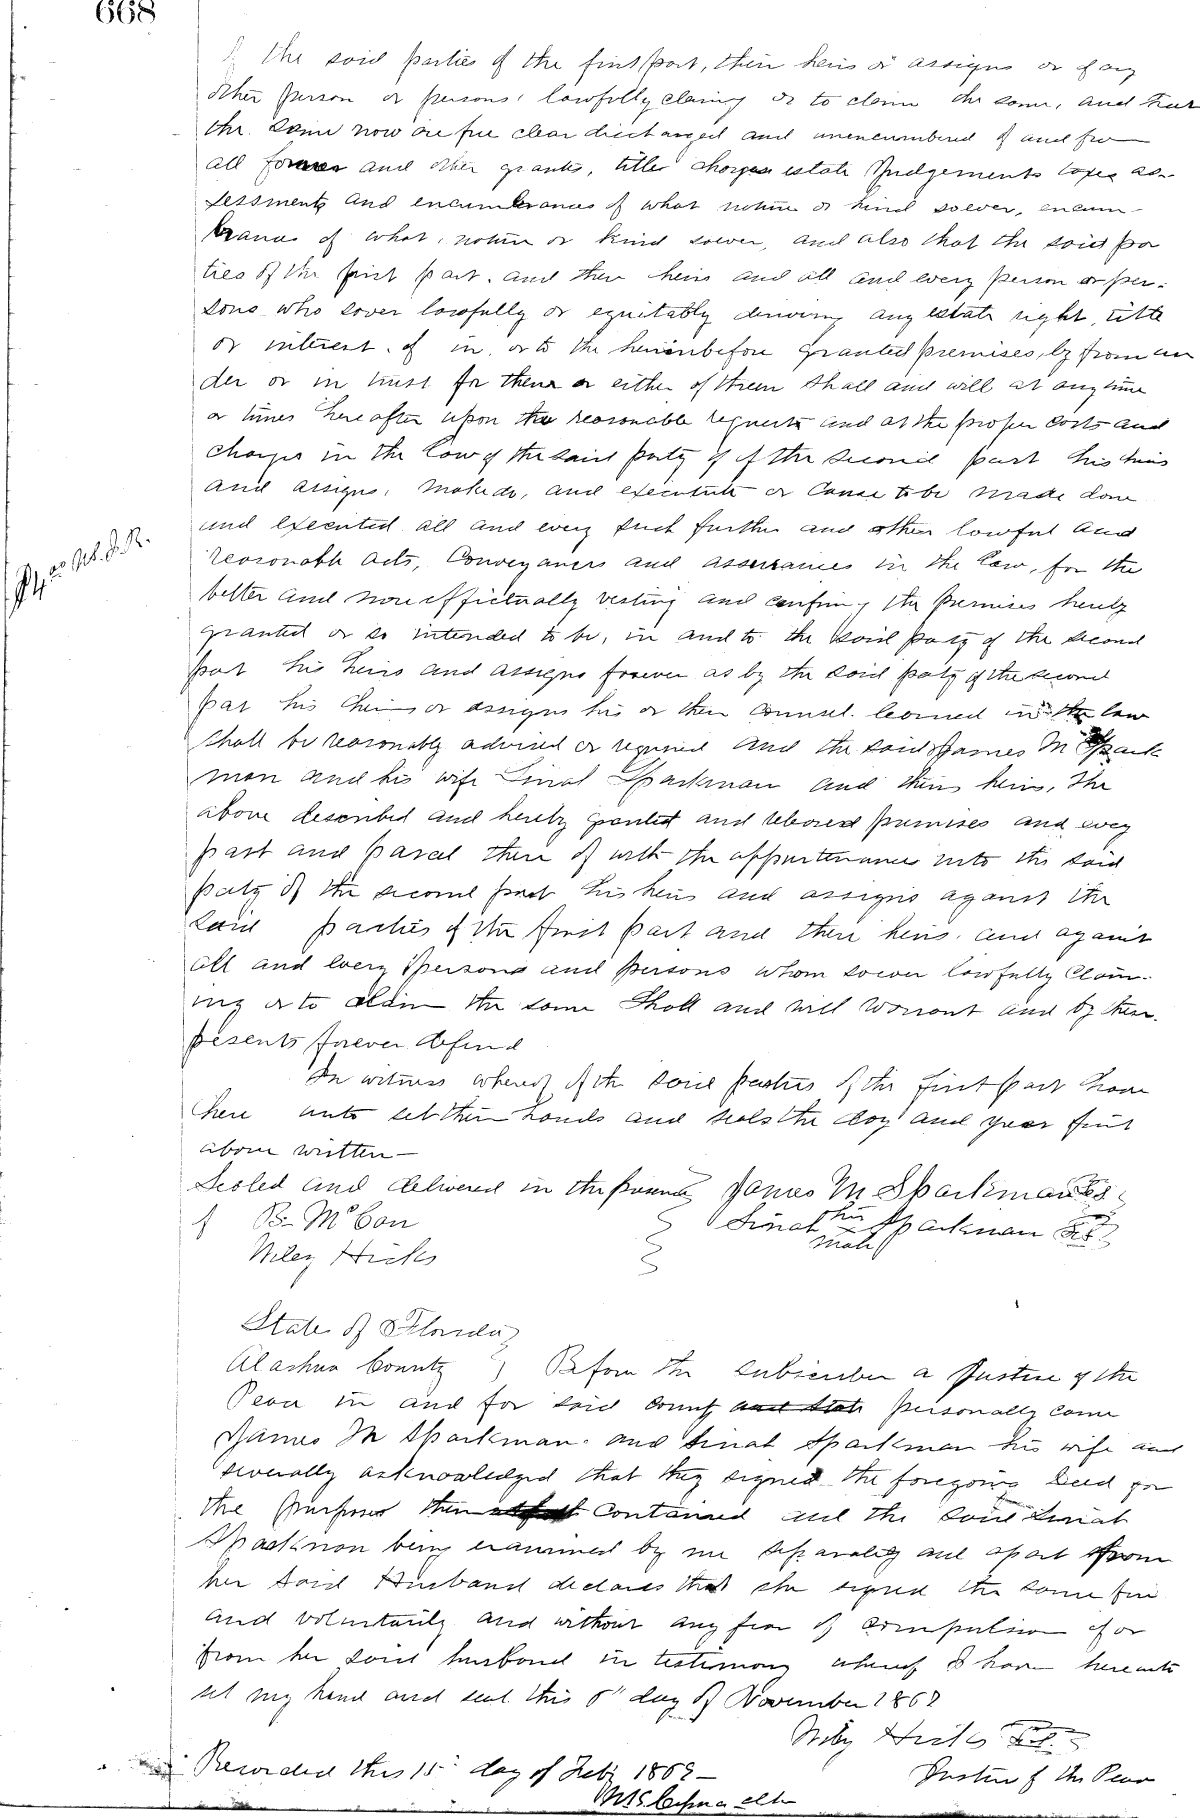 668
of the said parties of the first part, their heirs or assigns or of any
other person or persons lawfully claiming or to claim the same, and that
the same now are free clear discharged and unencumbered of and from
all former and other grants, titles charges estate Judgements taxes as-
sessments and encumbrances of what nature or kind soever, encum-
brance of what, nature or kind soever, and also that the said par
ties of the first part. and their heirs and all and every person or per-
sons who sover lawfully or equitably deriving any estate right, title
or interest. of in. or to the hereinbefore granted premises, by from un
der or in trust for them or either of them shall and will at any time
or times hereafter upon the reasonable requests and at the proper costs and
charges in the law of the said party of of the second part his heirs
and assigns, make do, and execute or cause to be made done
and executed all and every such further and other lawful and
reasonable acts, Conveyances and assurances in the law, for the
$1 00 U.S. I.R.
better and more effectually vesting and confirming the premises hereby
granted or so intended to be, in and to the said party of the second
part his heirs and assigns forever as by the said party of the second
part his heirs or assigns his or their counsel learned in the law
shall be reasonably advised or required And the said James M Spark
man and his wife Sinah Sparkman and their heirs, the
above described and hereby granted and released premises and every
part and parcel there of with the appurtenances unto the said
party of the second part his heirs and assigns against the
said parties of the first part and their heirs, and against
all and every persons and persons whom soever lawfully Claim-
ing or to claim the same Shall and will Warrant and by these
presents forever defend
In witness whereof the said parties of the first part have
here unto set their hands and seals the day and year first
above written —
Sealed and delivered in the presence James M Sparkman L S
of B. McCan Sinah her x mark Sparkman L.S.
Wiley Hicks
State of Florida
Alachua County } Before the subscriber a Justice of the
Peace in and for said county and State personally came
James M Sparkman and Sinah Sparkman his wife and
severally acknowledged that they signed the foregoing Deed for
the purposes therein contained and the said Sinah
Sparkman being examined by me separately and apart from
her said Husband declares that she signed the same free
and voluntarily and without any fear of compulsion of or
from her said husband in testimony whereof I have hereunto
set my hand and seal this day of November 1868
Wiley Hicks L.S.
Justice of the Peace
Recorded this 15th day of Feby 1869 —